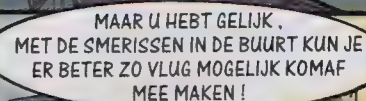 MAAR U HEBT GELIJK.
MET DE SMERISSEN IN DE BUURT KUN JE
ER BETER ZO VLUG MOGELIJK KOMAF
MEE MAKEN!